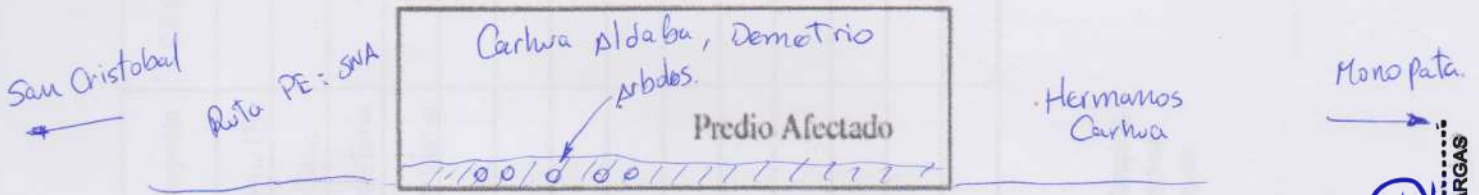 San Cristobal
Ruta PE: SNA
Carhua Aldaba, Demetrio
Arboles.
Predio Afectado
Hermanos
Carhua
Monopata.